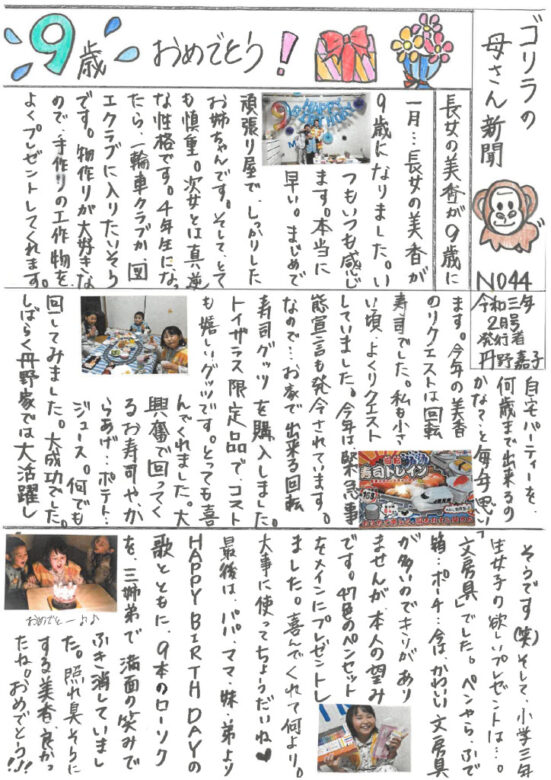 9歳 おめでとう!
ゴリラの
母さん新聞
NO44
令和三年
2月号
発行者
丹野嘉子
長女の美香が9歳に
一月…長女の美香が
9歳になりました。い
つもいつも感じ
ます。本当に
早い。まじめで
頑張り屋で、しっかりした
お姉ちゃんです。そして、とて
も慎重。次女とは真逆
な性格です。4年生になっ
たら、一輪車クラブか、図
工クラブに入りたいそう
です。物作りが大好きな
ので、手作りの工作物を
よくプレゼントしてくれます。
自宅パーティーを、
何歳まで出来るの
かな?と毎年思い
ます。今年の美香
のリクエストは回転
寿司でした。私も小さ
い頃、よくリクエスト
していました。今年は緊急事
態宣言も発令されています。
なので…お家で出来る回転
寿司グッツを購入しました。
トイザラス限定品で、コスト
も嬉しいグッツです。とっても喜
んでくれました。大
興奮で回ってく
るお寿司やか
らあげ…ポテト…
ジュース。何でも
回してみました。大成功でした。
しばらく丹野家では大活躍し
寿司トレイン
そうです(笑)そして、小学三年
生女子の欲しいプレゼントは…
「文房具」でした。ペンやら、ふで
箱…ポーチ…今はかわいい文房具
が多いのでキリがあり
ませんが、本人の望み
です。47色のペンセット
をメインにプレゼントし
ました。喜んでくれて何より。
大事に使ってちょうだいね♥
最後は…パパ、ママ、妹、弟より
HAPPY BIRTHDAYの
歌とともに、9本のローソク
を、三姉弟で満面の笑みで
ふき消していまし
た。照れ臭そうに
する美香、良かっ
たね。おめでとう!!
おめでとー♪♪